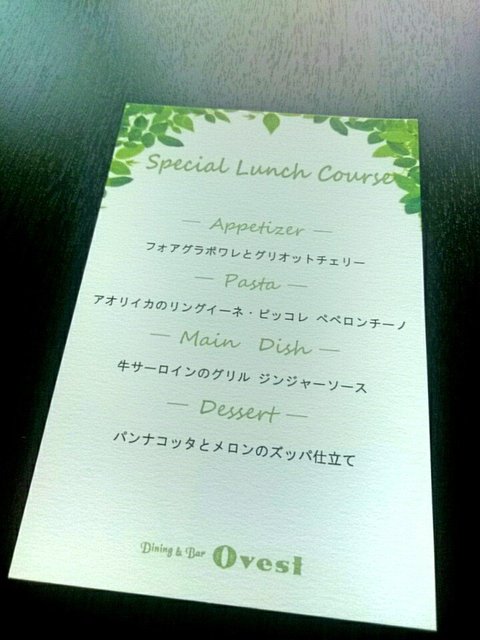 Special Lunch Course
— Appetizer —
フォアグラポワレとグリオットチェリー
— Pasta —
アオリイカのリングイーネ・ピッコレ ペペロンチーノ
— Main Dish —
牛サーロインのグリル ジンジャーソース
— Dessert —
パンナコッタとメロンのズッパ仕立て
Dining & Bar Ovest